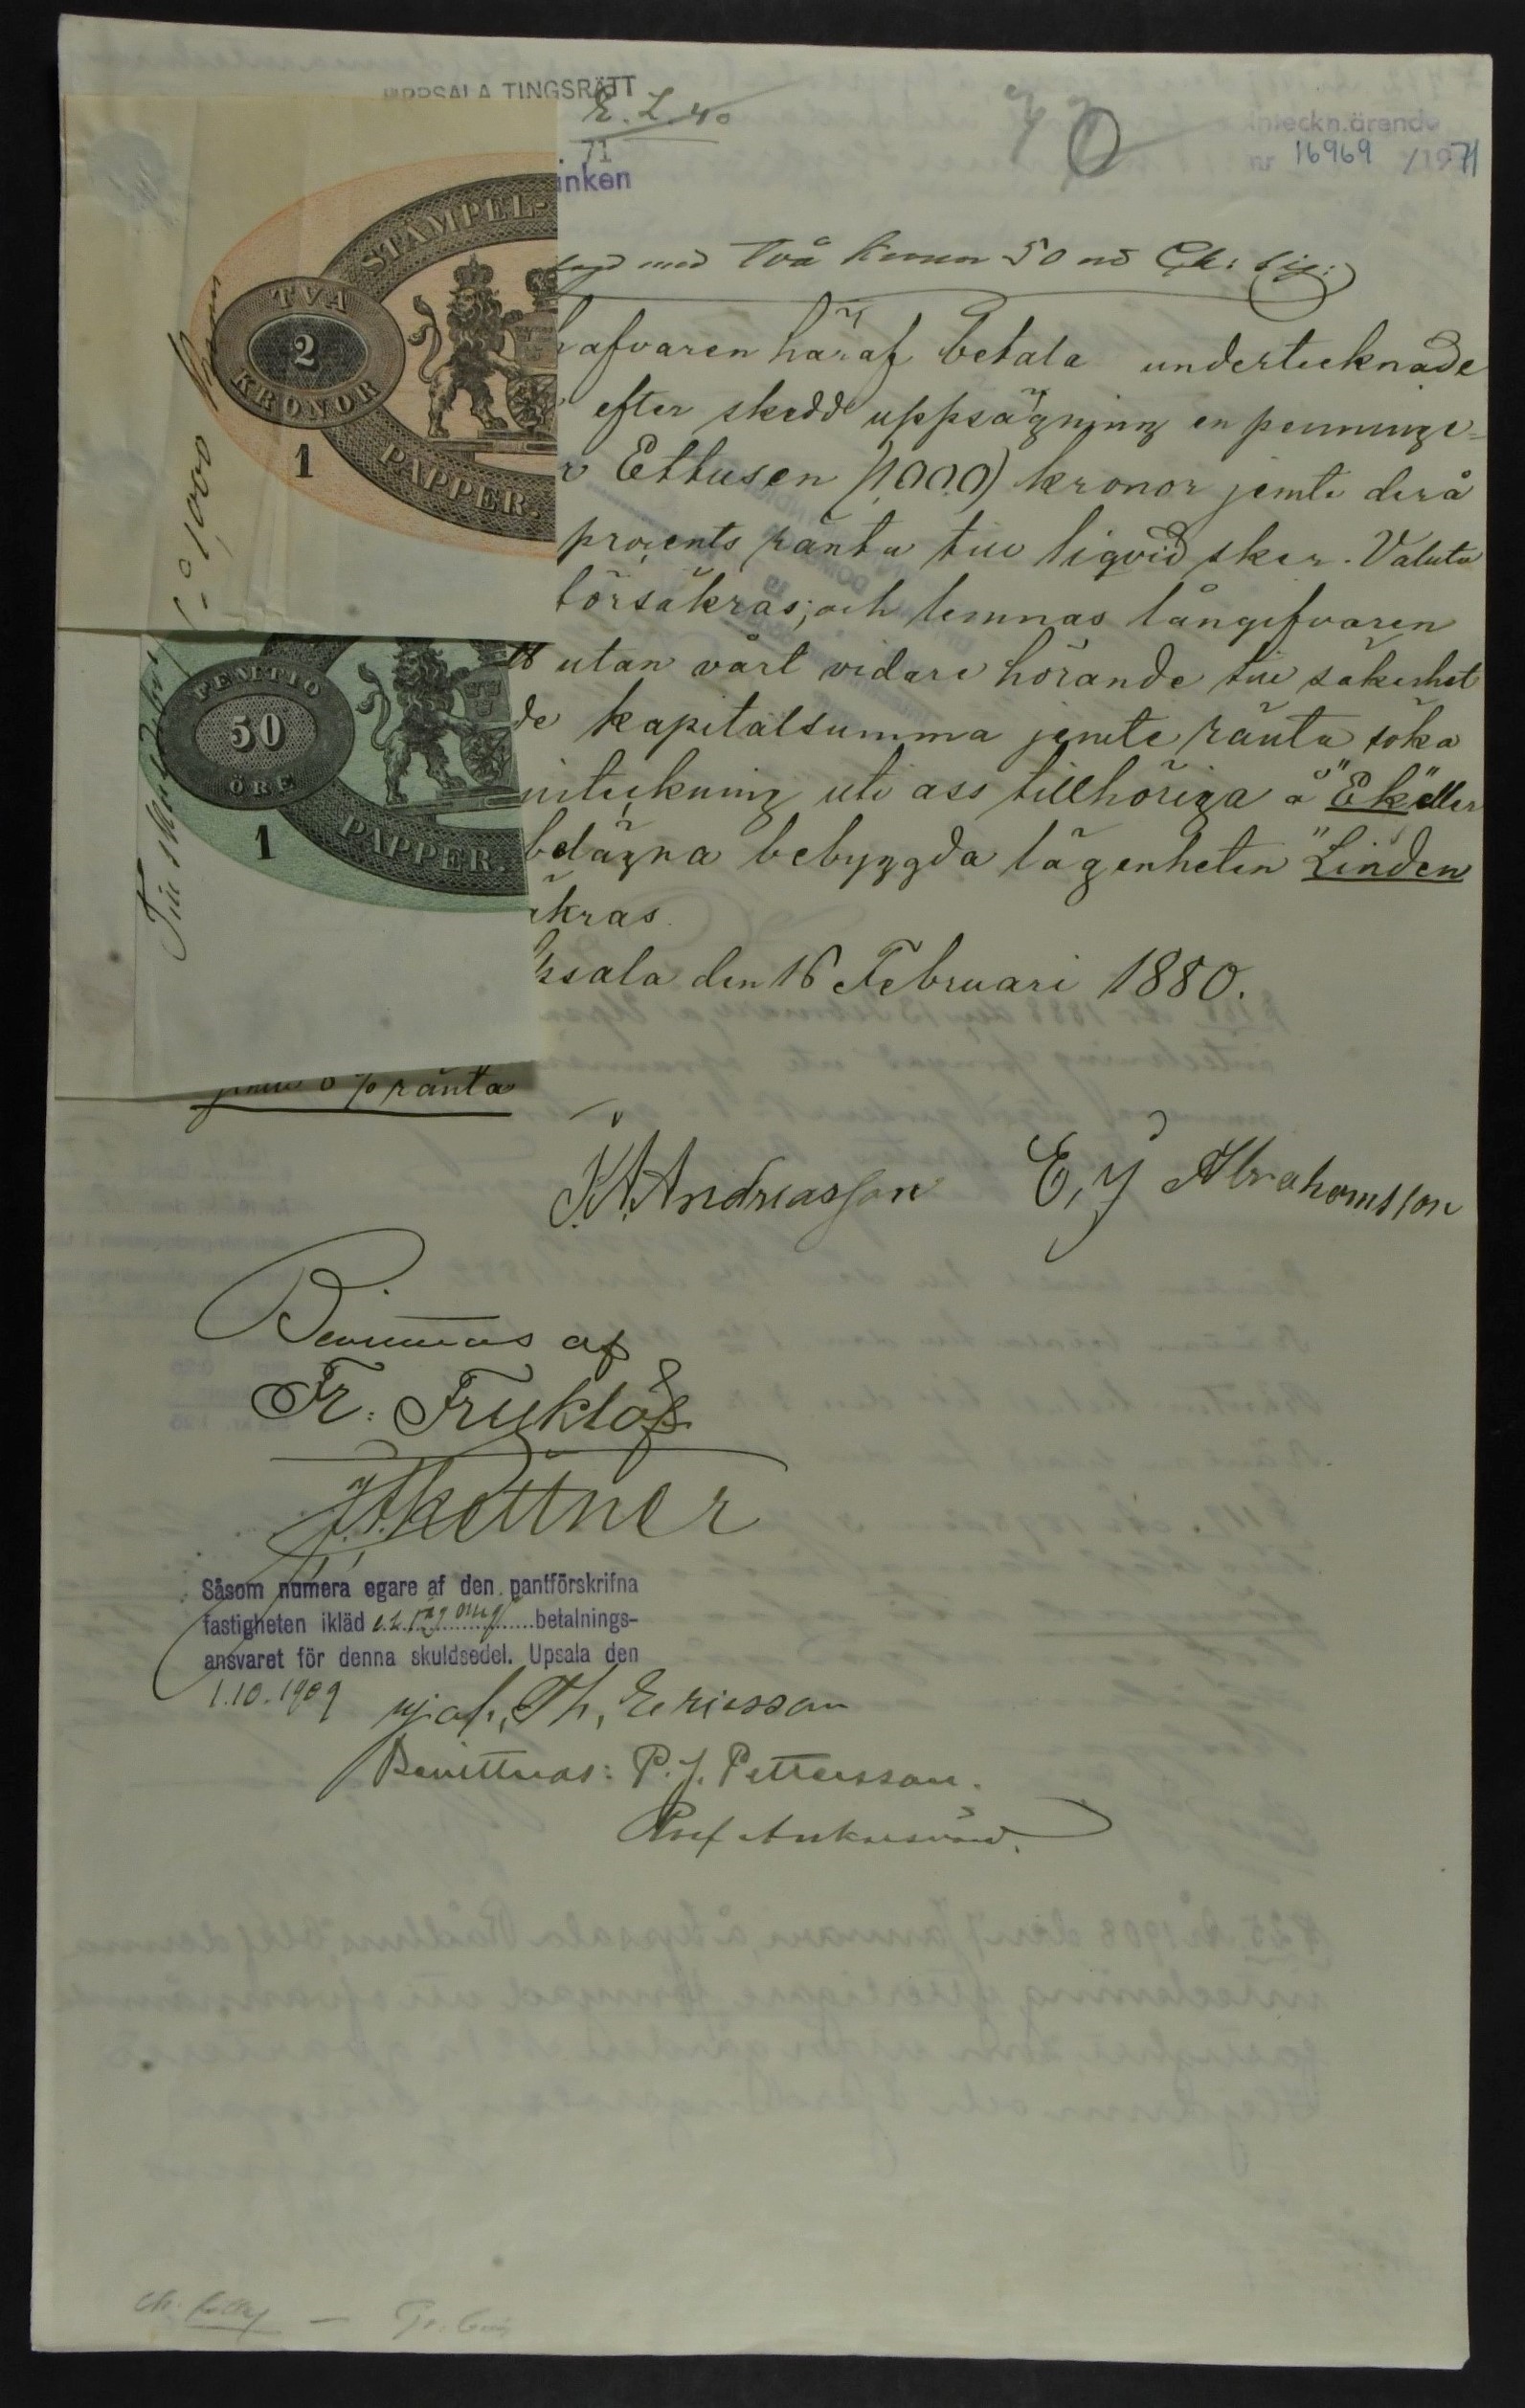 UPPSALA TINGSRÄTT
E. L. 40
71
Inteckn.ärende
nr 16969 /1971
70
STÄMPEL-
TVÅ
2
KRONOR
1
PAPPER.
1000
med Två kronor 50
afvaren häraf betala undertecknade
efter skedd uppsägning en penninge-
Ettusen (1000) kronor jemte derå
procents ränta till liqvid sker. Valuta
försäkras; och lemnas långifvaren
utan vårt vidare hörande till säkerhet
de kapitalsumma jemte ränta söka
inteckning uti oss tillhöriga å "Ek" eller
belägna bebyggda lägenheten "Linden
kras.
FEMTIO
50
ÖRE
1
PAPPER.
sala den 16 Februari 1880.
% ränta
K A Andreasson E, J Abrahamsson
Bevittnas af
Fr. Fryklöf
J. A. Kettner
Såsom numera egare af den pantförskrifna
fastigheten ikläd betalnings-
ansvaret för denna skuldsedel. Upsala den
1.10.1909
Th, Ericsson
Bevittnas: P. J. Pettersson.